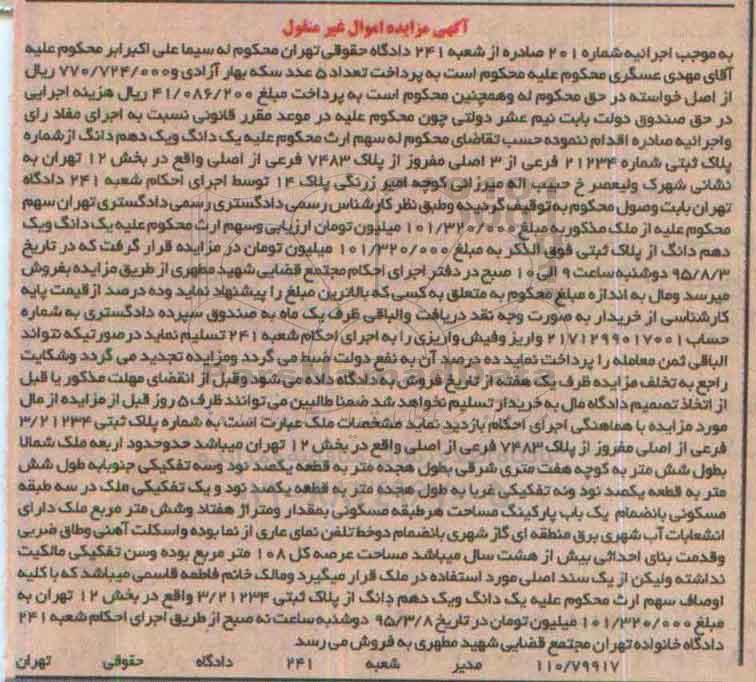 آگهی مزایده اموال غیر منقول
به موجب اجرائیه شماره ۲۰۱ صادره از شعبه ۲۴۱ دادگاه حقوقی تهران محکوم له سیما علی اکبر ابر محکوم علیه
آقای مهدی عسگری محکوم علیه محکوم است به پرداخت تعداد ۵ عدد سکه بهار آزادی و ۷۷۰/۷۲۴/۰۰۰ ریال
از اصل خواسته در حق محکوم له وهمچنین محکوم است به پرداخت مبلغ ۴۱/۰۸۶/۲۰۰ ریال هزینه اجرایی
در حق صندوق دولت بابت نیم عشر دولتی چون محکوم علیه در موعد مقرر قانونی نسبت به اجرای مفاد رای
واجرائیه صادره اقدام ننموده حسب تقاضای محکوم له سهم ارث محکوم علیه یک دانگ ویک دهم دانگ از شماره
پلاک ثبتی شماره ۲۱۲۳۴ فرعی از ۳ اصلی مفروز از پلاک ۷۴۸۳ فرعی از اصلی واقع در بخش ۱۲ تهران به
نشانی شهرک ولیعصر خ حبیب اله میرزائی کوچه امیر زرنگی پلاک ۱۴ توسط اجرای احکام شعبه ۲۴۱ دادگاه
تهران بابت وصول محکوم به توقیف گردیده وطبق نظر کارشناس رسمی دادگستری رسمی دادگستری تهران سهم
محکوم علیه از ملک مذکور به مبلغ ۱۰۱/۳۲۰/۰۰۰ میلیون تومان ارزیابی وسهم ارث محکوم علیه یک دانگ ویک
دهم دانگ از پلاک ثبتی فوق الذکر به مبلغ ۱۰۱/۳۲۰/۰۰۰ میلیون تومان در مزایده قرار گرفت که در تاریخ
۹۵/۸/۳ دوشنبه ساعت ۹ الی ۱۰ صبح در دفتر اجرای احکام مجتمع قضایی شهید مطهری از طریق مزایده بفروش
میرسد ومال به اندازه مبلغ محکوم به متعلق به کسی که بالاترین مبلغ را پیشنهاد نماید وده درصد از قیمت پایه
کارشناسی از خریدار به صورت وجه نقد دریافت والباقی ظرف یک ماه به صندوق سپرده دادگستری به شماره
حساب ۲۱۷۱۲۹۹۰۱۷۰۰۱ واریز وفیش واریزی را به اجرای احکام شعبه ۲۴۱ تسلیم نماید در صورتیکه نتواند
الباقی ثمن معامله را پرداخت نماید ده درصد آن به نفع دولت ضبط می گردد ومزایده تجدید می گردد وشکایت
راجع به تخلف مزایده ظرف یک هفته از تاریخ فروش به دادگاه داده می شود وقبل از انقضای مهلت مذکور یا قبل
از اتخاذ تصمیم دادگاه مال به خریدار تسلیم نخواهد شد ضمنا طالبین می توانند ظرف ۵ روز قبل از مزایده از مال
مورد مزایده با هماهنگی اجرای احکام بازدید نماید مشخصات ملک عبارت است به شماره پلاک ثبتی ۳/۲۱۲۳۴
فرعی از اصلی مفروز از پلاک ۷۴۸۳ فرعی از اصلی واقع در بخش ۱۲ تهران میباشد حدوحدود اربعه ملک شمالا
بطول شش متر به کوچه هفت متری شرقی بطول هجده متر به قطعه یکصد نود وسه تفکیکی جنوبابه طول شش
متر به قطعه یکصد نود ونه تفکیکی غربا به طول هجده متر به قطعه یکصد نود و یک تفکیکی ملک در سه طبقه
مسکونی بانضمام یک باب پارکینگ مساحت هرطبقه مسکونی بمقدار ومتراژ هفتاد وشش متر مربع ملک دارای
انشعابات آب شهری برق منطقه ای گاز شهری بانضمام دوخط تلفن نمای عاری از نما بوده واسکلت آهنی وطاق ضربی
وقدمت بنای احداثی بیش از هشت سال میباشد مساحت عرصه کل ۱۰۸ متر مربع بوده وسن تفکیکی مالکیت
نداشته ولیکن از یک سند اصلی مورد استفاده در ملک قرار میگیرد ومالک خانم فاطمه قاسمی میباشد که با کلیه
اوصاف سهم ارث محکوم علیه یک دانگ ویک دهم دانگ از پلاک ثبتی ۳/۲۱۲۳۴ واقع در بخش ۱۲ تهران به
مبلغ ۱۰۱/۳۲۰/۰۰۰ میلیون تومان در تاریخ ۹۵/۳/۸ دوشنبه ساعت نه صبح از طریق اجرای احکام شعبه ۲۴۱
دادگاه خانواده تهران مجتمع قضایی شهید مطهری به فروش می رسد
۱۱۰/۷۹۹۱۷ مدیر شعبه ۲۴۱ دادگاه حقوقی تهران